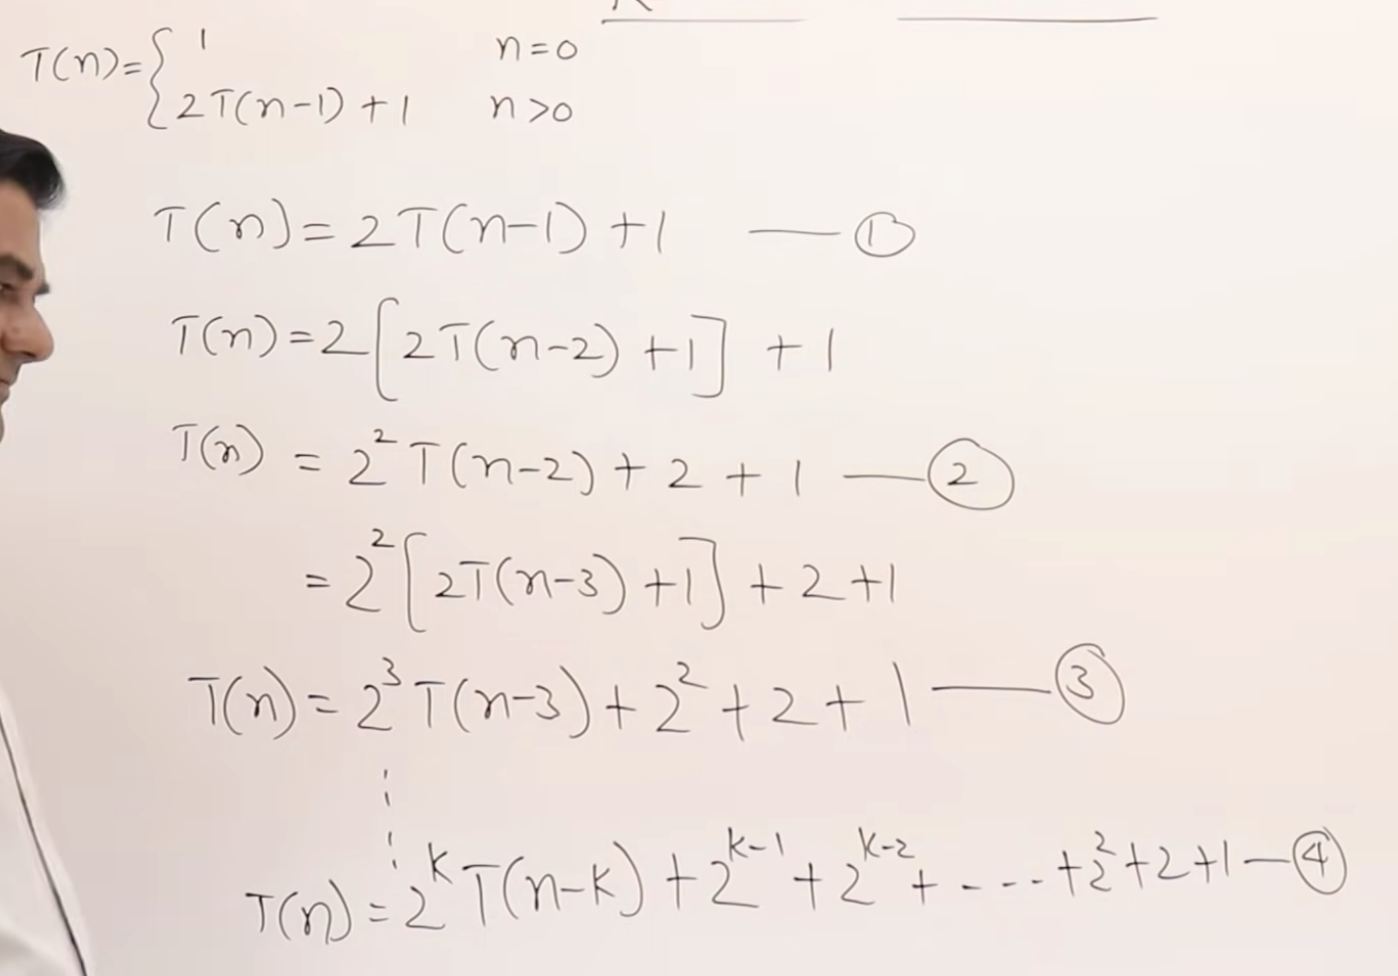 T(n)= { 1 n=0
2T(n-1)+1 n>0
T(n) = 2T(n-1) +1 — ①
T(n) = 2[2T(n-2) +1] +1
T(n) = 2² T(n-2) + 2 + 1 — ②
= 2² [2T(n-3) +1] + 2 +1
T(n) = 2³ T(n-3) + 2² + 2 + 1 — ③
T(n) = 2^k T(n-k) + 2^(k-1) + 2^(k-2) + ---- + 2² + 2 + 1 — ④